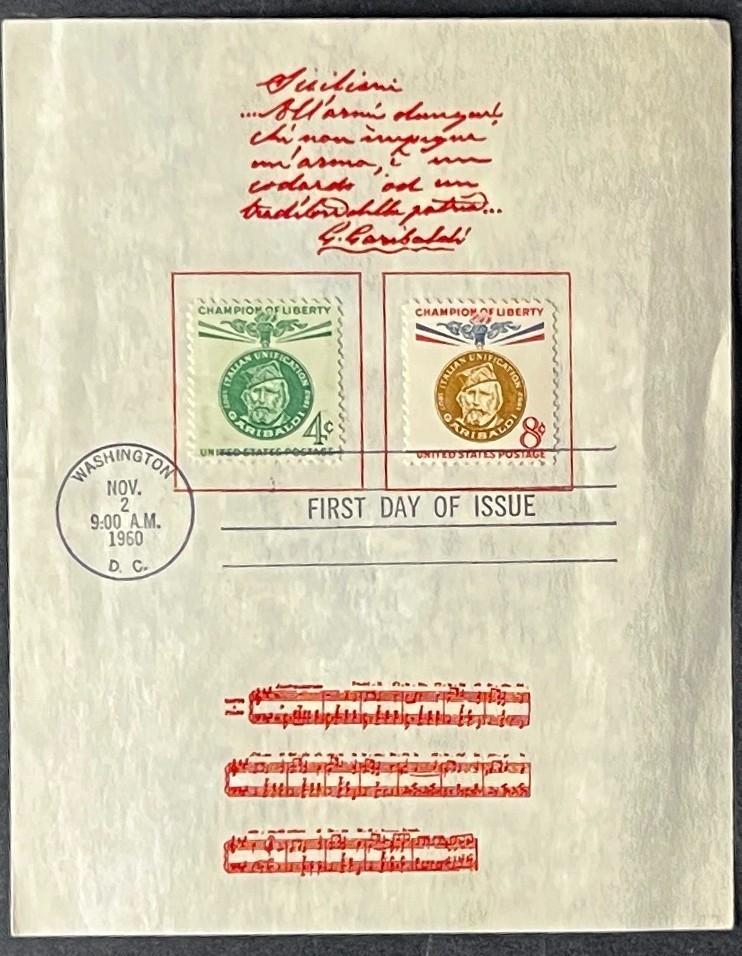 Siciliani
...All'armi dunque!
chi non impugna
un'arma, è un
codardo od un
traditore della patria...
G. Garibaldi
CHAMPION OF LIBERTY
ITALIAN UNIFICATION
1807 1882
GARIBALDI
4¢
UNITED STATES POSTAGE
CHAMPION OF LIBERTY
ITALIAN UNIFICATION
1807 1882
GARIBALDI
8¢
UNITED STATES POSTAGE
WASHINGTON
NOV.
2
9:00 A.M.
1960
D. C.
FIRST DAY OF ISSUE